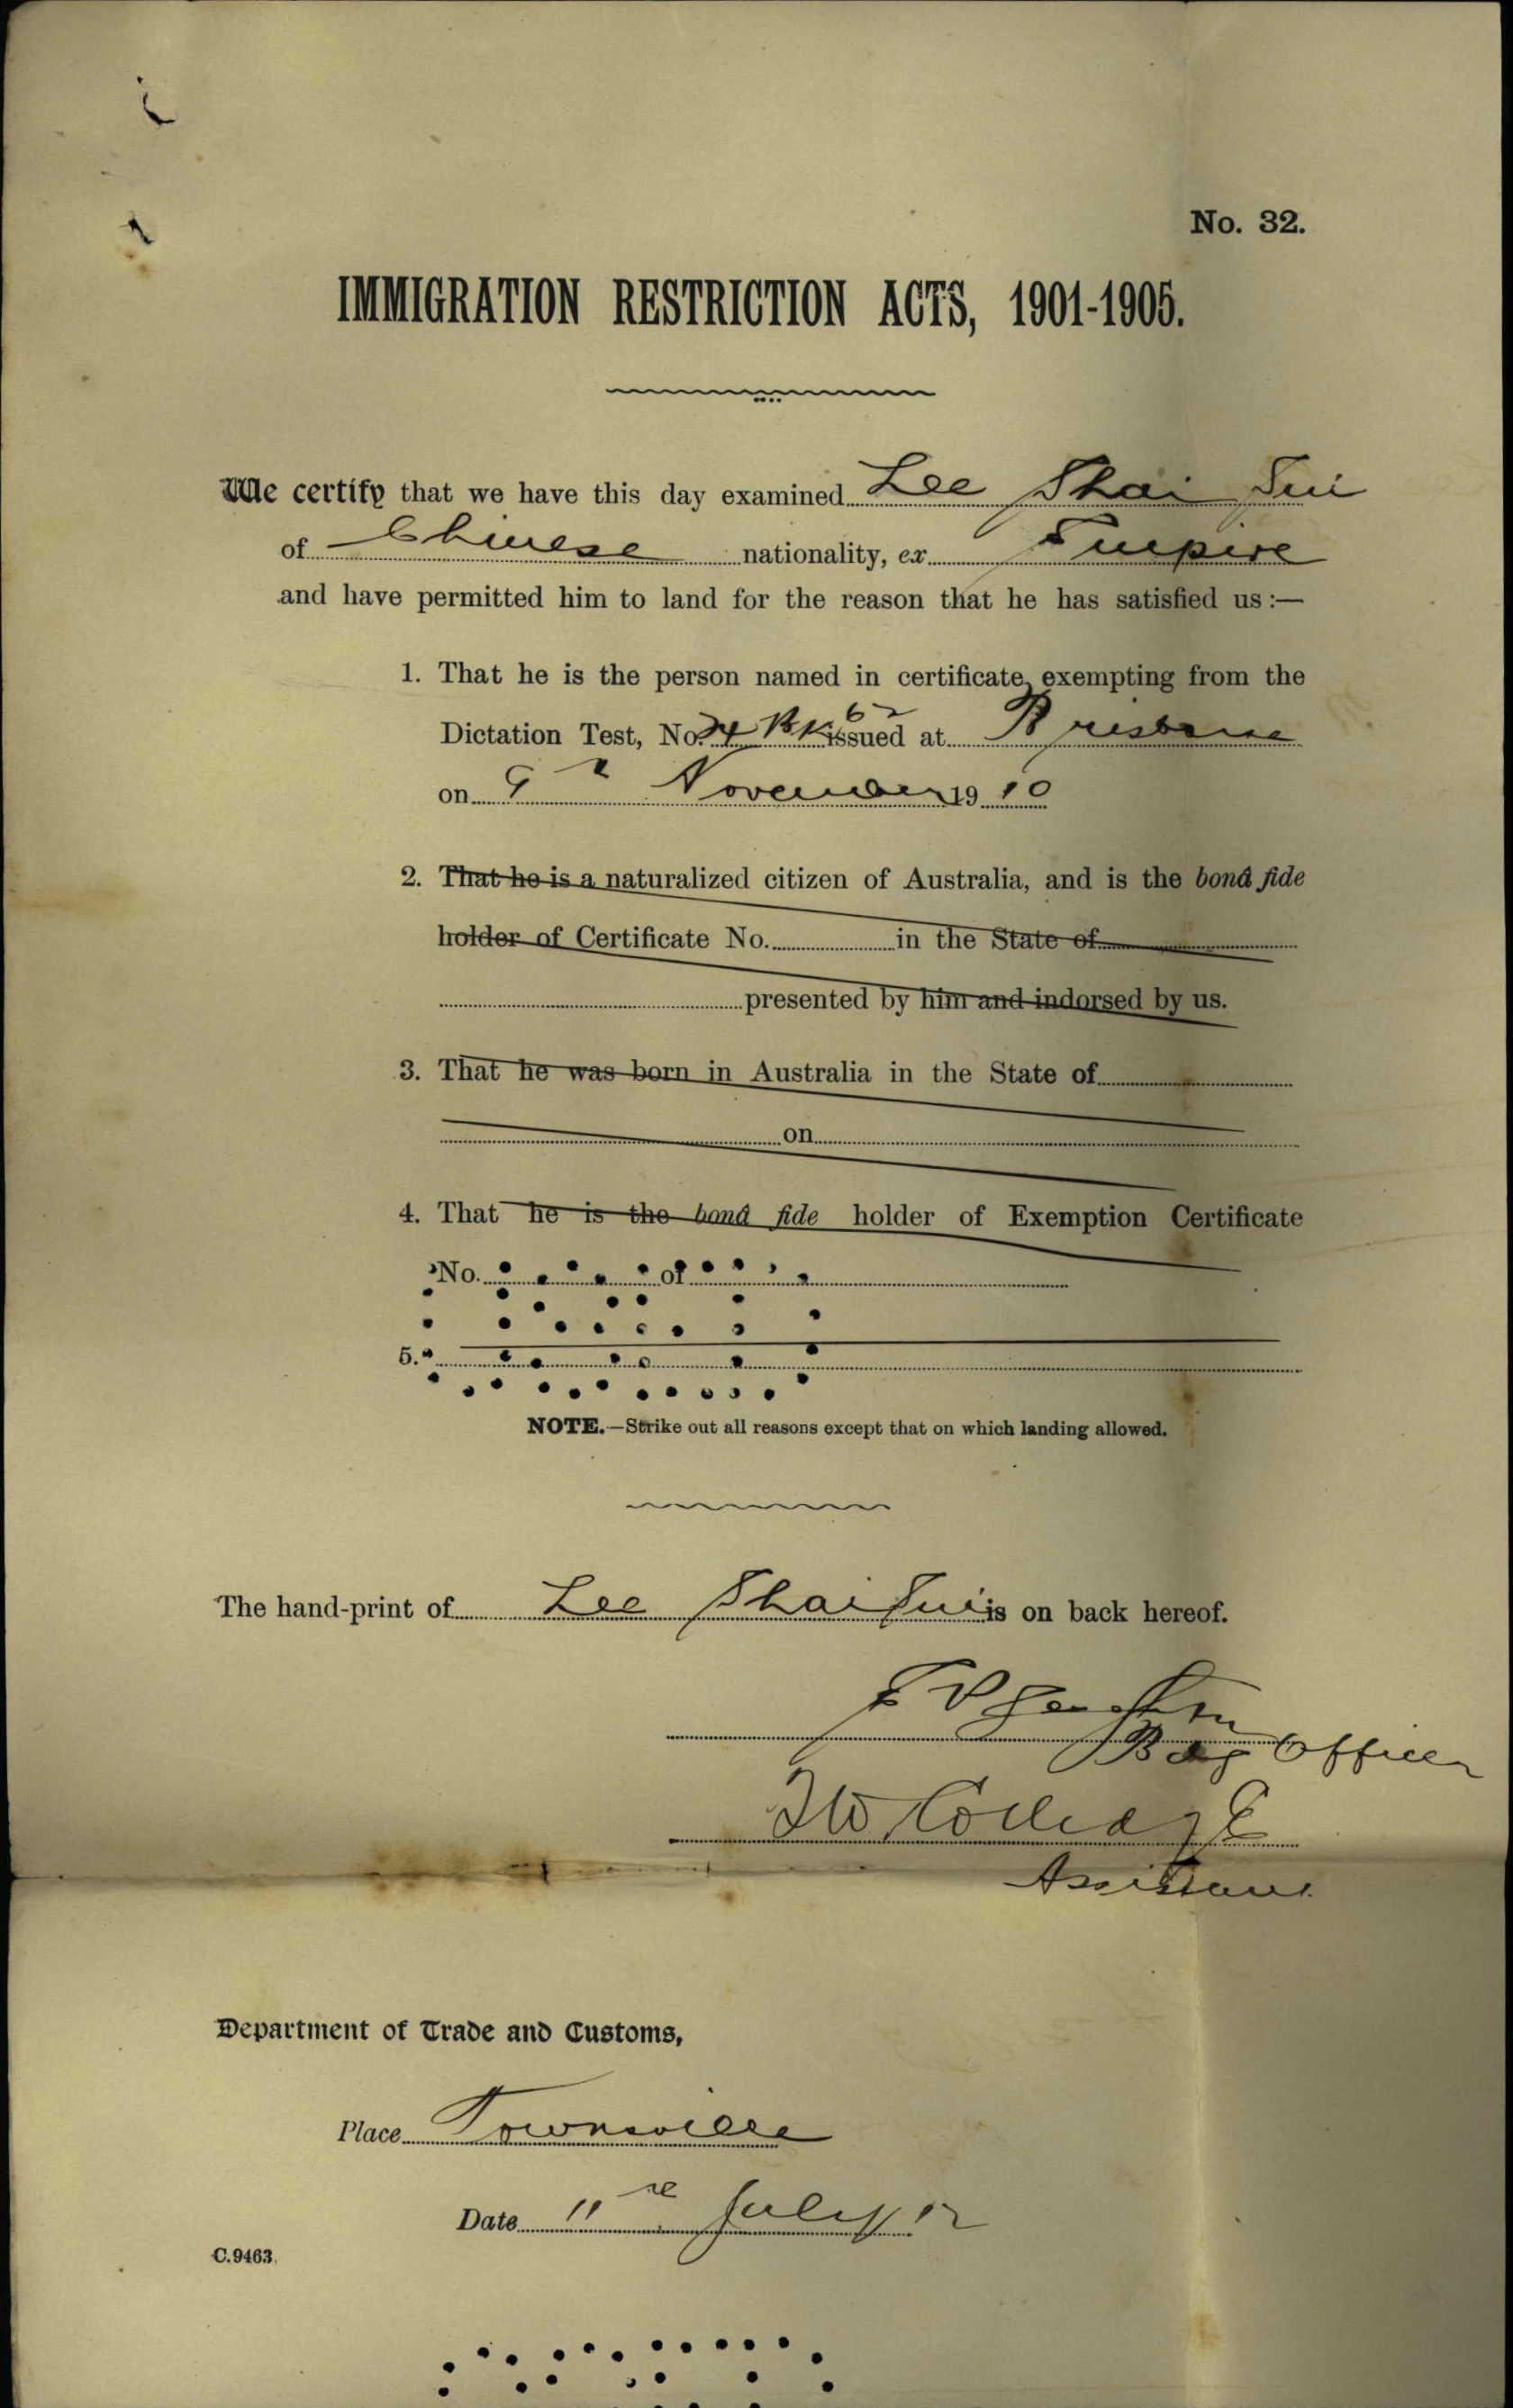 No. 32.
IMMIGRATION RESTRICTION ACTS, 1901-1905.
We certify that we have this day examined Lee Shai Sui
of Chinese nationality, ex Empire
and have permitted him to land for the reason that he has satisfied us:—
1. That he is the person named in certificate exempting from the
62
Dictation Test, No. 24 Bk issued at Brisbane
on 9th November 1910
2. That he is a naturalized citizen of Australia, and is the bonâ fide
holder of Certificate No. in the State of
presented by him and indorsed by us.
3. That he was born in Australia in the State of
on
4. That he is the bonâ fide holder of Exemption Certificate
No. of
5.
NOTE.—Strike out all reasons except that on which landing allowed.
The hand-print of Lee Shai Sui is on back hereof.
Bdg Officer
Assistant
Department of Trade and Customs,
Place Townsville
Date 11th July 12
C.9463.